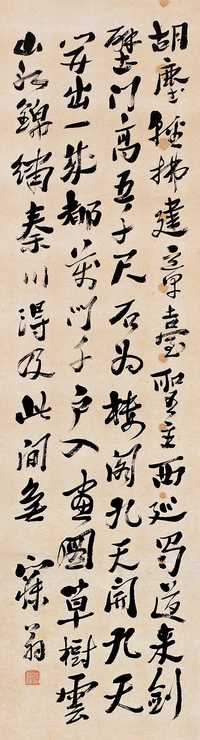 胡塵輕拂建章臺聖主西巡蜀道来劍
壁門高五千尺石為樓閣九天開九天
開出一成都萬門千户入畫圖草樹雲
山如錦繡秦川得及此間無 寐翁